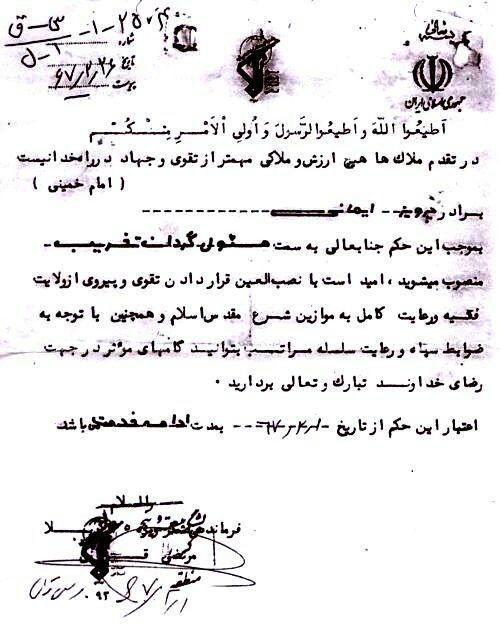 شماره
تاریخ
پیوست
جمهوری اسلامی ایران
اَطیعُوا اللّهَ وَ اَطیعُوالرَّسولَ وَ اُولِی الْاَمْرِ مِنْکُمْ
در تقدم ملاک ها هیچ ارزش و ملاکی مهمتر از تقوی و جهاد در راه خدا نیست
( امام خمینی )
برادر پرویز ایمانی
بموجب این حکم جنابعالی به سمت مسئول گردان تخریب
منصوب میشوید ، امید است با نصب‌العین قرار دادن تقوی و پیروی از ولایت
فقیه و رعایت کامل به موازین شرع مقدس اسلام و همچنین با توجه به
ضوابط سپاه و رعایت سلسله مراتب بتوانید گامهای مؤثر در جهت
رضای خداوند تبارک و تعالی بردارید .
اعتبار این حکم از تاریخ بمدت ادامه خدمت می باشد
والسلام
فرمانده
مرتضی
منطقه